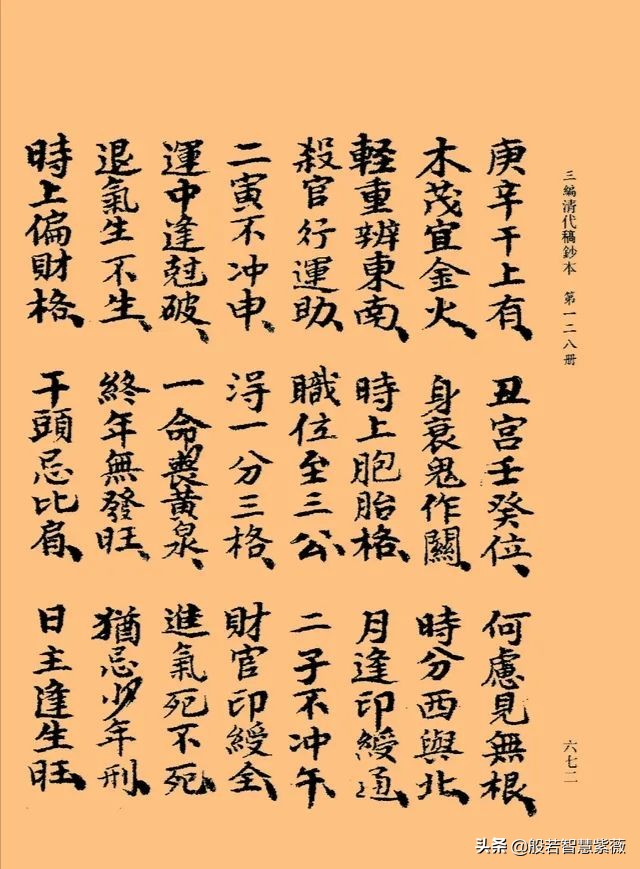 三編清代稿鈔本 第一二八册
庚辛干上有、丑宫壬癸位、何慮見無根、
木茂宜金火、身衰鬼作關、時分西與北、
軽重辨東南、時上胞胎格、月逢印綬通、
殺官行運助、職位至三公、二子不冲午、
二寅不冲申、淂一分三格、財官印綬全、
運中逢尅破、一命喪黄泉、進氣死不死、
退氣生不生、終年無發旺、猶忌少年刑、
時上偏財格、干頭忌比肩、日主逢生旺、
六七二
头条 @般若智慧紫薇